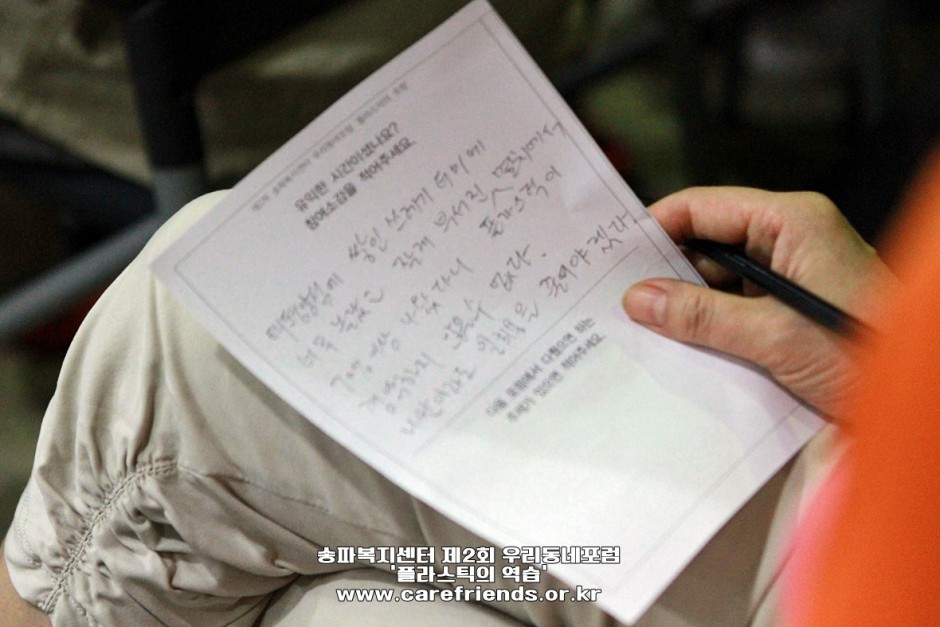 제2회 송파복지센터 우리동네포럼 '플라스틱의 역습'
유익한 시간이셨나요?
참여소감을 적어주세요.
쌓인 쓰레기 더미에
너무 놀랐고 작게 부서진 멸치에서
70명 이상 나왔다니 플라스틱이
않을수 없다.
나만이라도 일회용을 줄여야겠다
다음 포럼에서 다뤘으면 하는
주제가 있으면 적어주세요.
송파복지센터 제2회 우리동네포럼
'플라스틱의 역습'
www.carefriends.or.kr